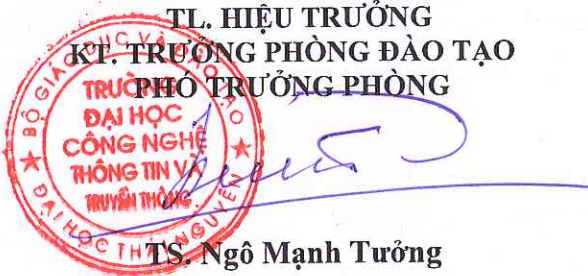 TL. HIỆU TRƯỞNG
KT. TRƯỞNG PHÒNG ĐÀO TẠO
PHÓ TRƯỞNG PHÒNG
BỘ GIÁO DỤC VÀ ĐÀO TẠO
TRƯỜNG
ĐẠI HỌC
CÔNG NGHỆ
THÔNG TIN VÀ
TRUYỀN THÔNG
ĐẠI HỌC THÁI NGUYÊN
TS. Ngô Mạnh Tưởng